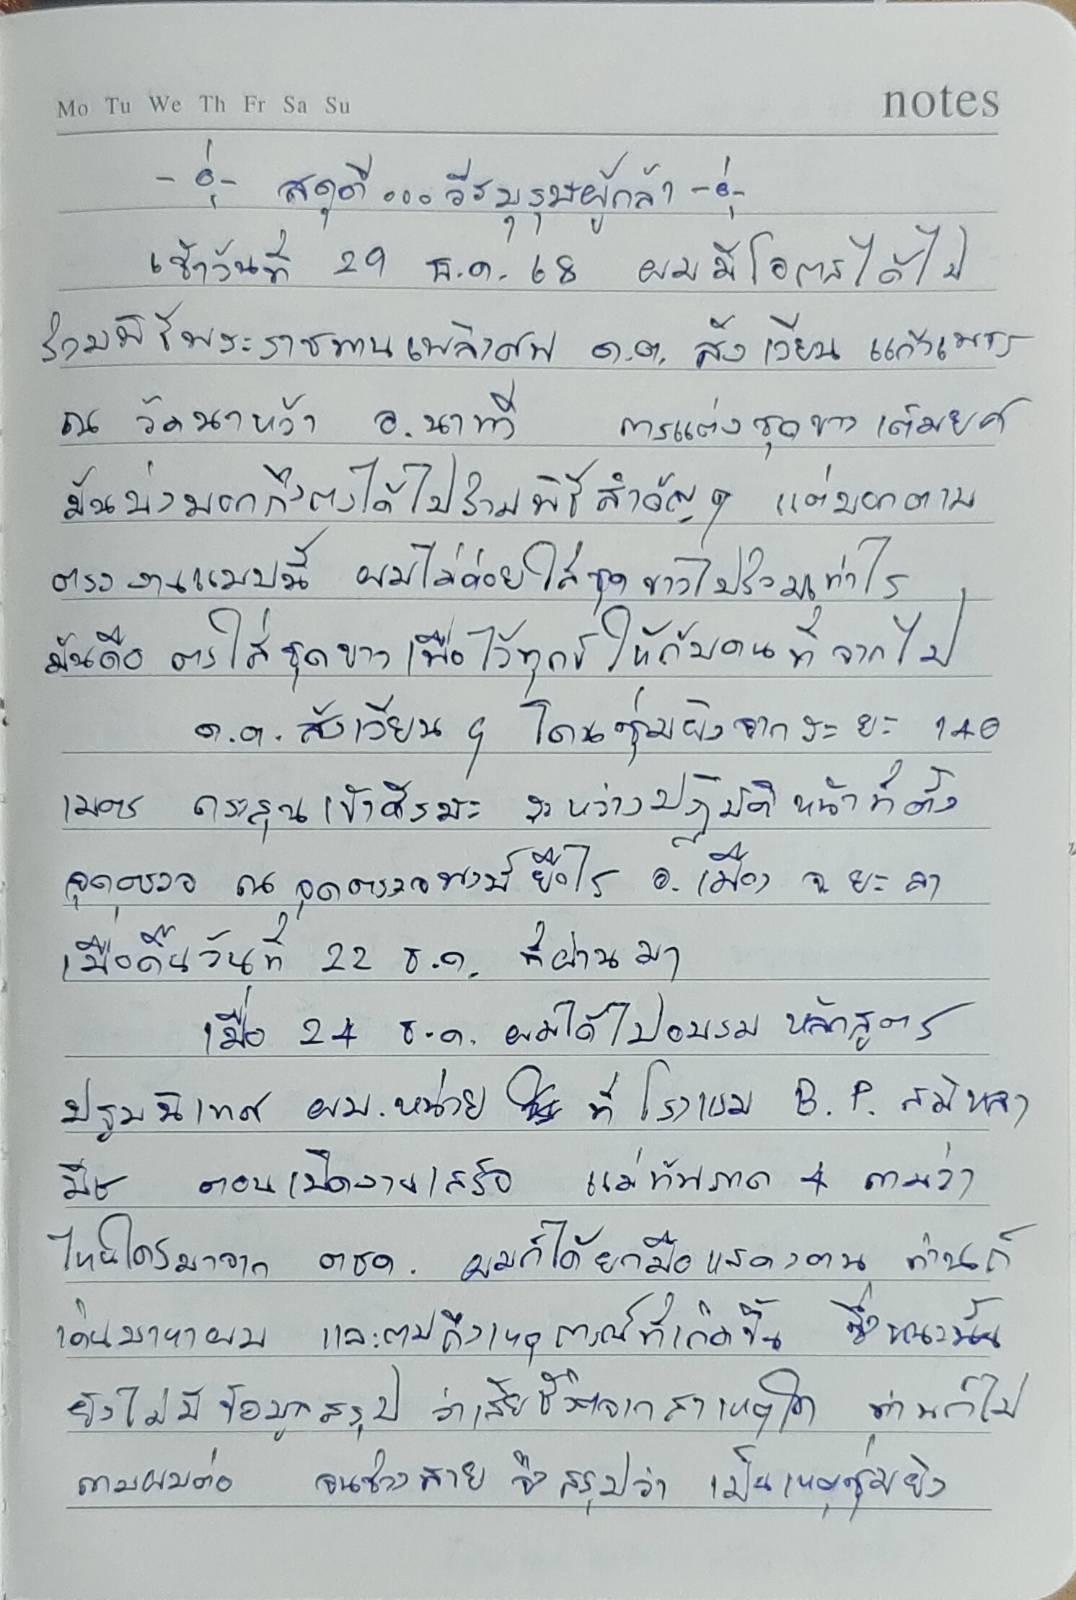 Mo Tu We Th Fr Sa Su
notes
สดุดี...วีรบุรุษผู้กล้า
เช้าวันที่ 29 ธ.ค. 68 ผมมีโอกาสได้ไป
ร่วมพิธีพระราชทานเพลิงศพ ด.ต. สังเวียน แก้วเพชร
ณ วัดนาหว้า อ.นาทวี การแต่งชุดขาวเต็มยศ
มันบ่งบอกถึงการได้ไปร่วมพิธีสำคัญๆ แต่บอกตาม
ตรง งานแบบนี้ ผมไม่ค่อยใส่ชุดขาวไปร่วมเท่าไร
มันคือ การใส่ชุดขาวเพื่อไว้ทุกข์ให้กับคนที่จากไป
ด.ต. สังเวียน ฯ โดนซุ่มยิงจากระยะ 140
เมตร กระสุนเข้าศีรษะ ระหว่างปฏิบัติหน้าที่ตั้ง
จุดตรวจ ณ จุดตรวจพงบือไร อ.เมือง จ.ยะลา
เมื่อคืนวันที่ 22 ธ.ค. ที่ผ่านมา
เมื่อ 24 ธ.ค. ผมได้ไปอบรม หลักสูตร
ปฐมนิเทศ ผบ.หน่วย ที่ โรงแรม B.P. สมิหลา
บีช ตอนเปิดงานเสร็จ แม่ทัพภาค 4 ถามว่า
ไหนใครมาจาก ตชด. ผมก็ได้ยกมือแสดงตน ท่านก็
เดินมาหาผม และถามถึงเหตุการณ์ที่เกิดขึ้น ซึ่งขณะนั้น
ยังไม่มีข้อมูลสรุป ว่าเสียชีวิตจากสาเหตุใด ท่านก็ไป
ถามผมต่อ จนช่วงสาย จึงสรุปว่า เป็นเหตุซุ่มยิง